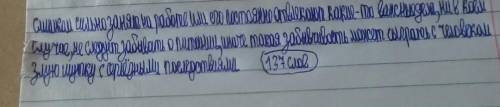 слишком сильно занят на работе или его постоянно отвлекают какие-то ни в коем
случае, не следует забывать о питании, иначе такая забывчивость может сыграть с человеком
злую шутку с серьёзными последствиями 137 слов